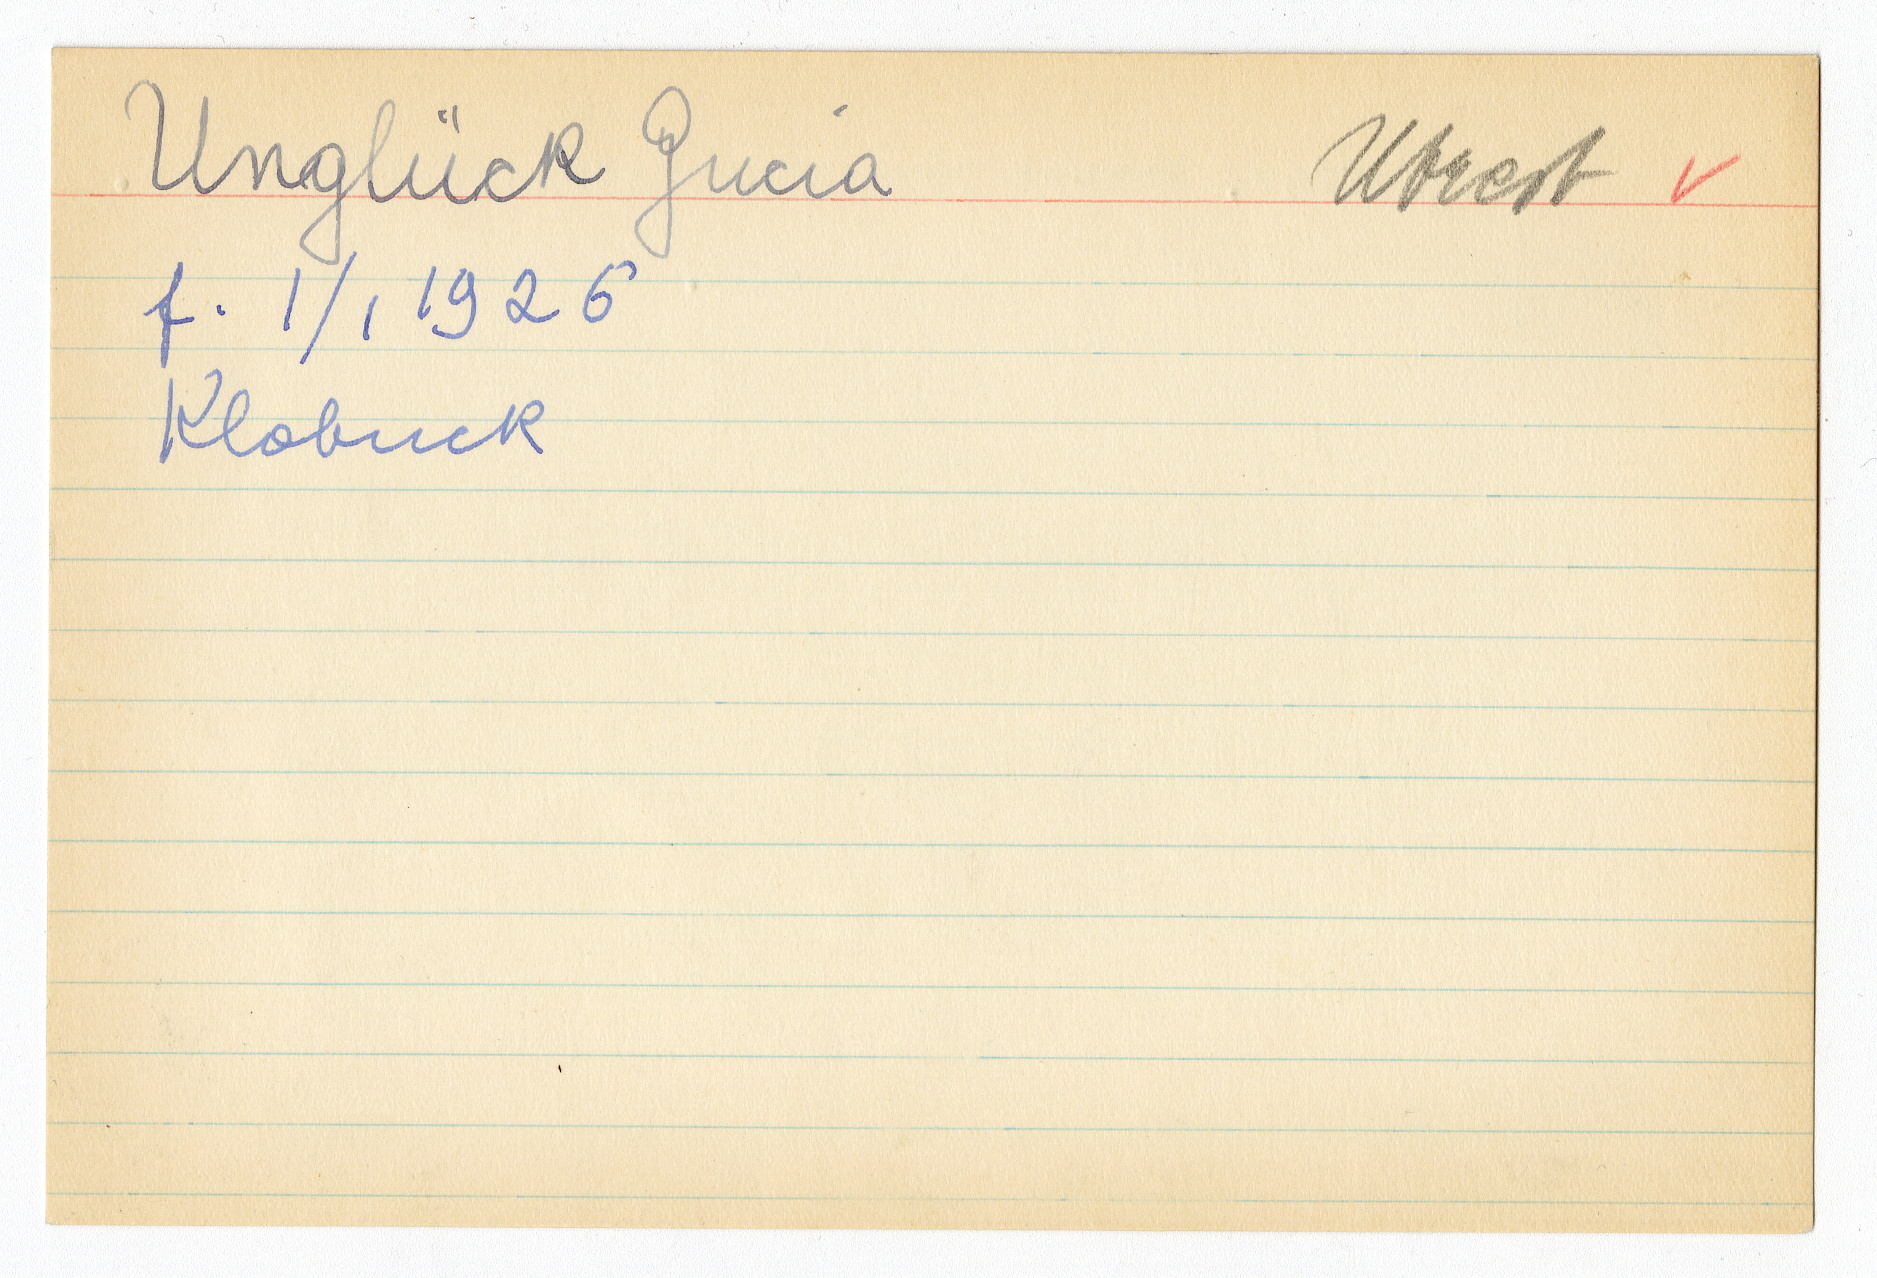 Unglück Gucia Utrest ✓
f. 1/1 1926
Klobuck